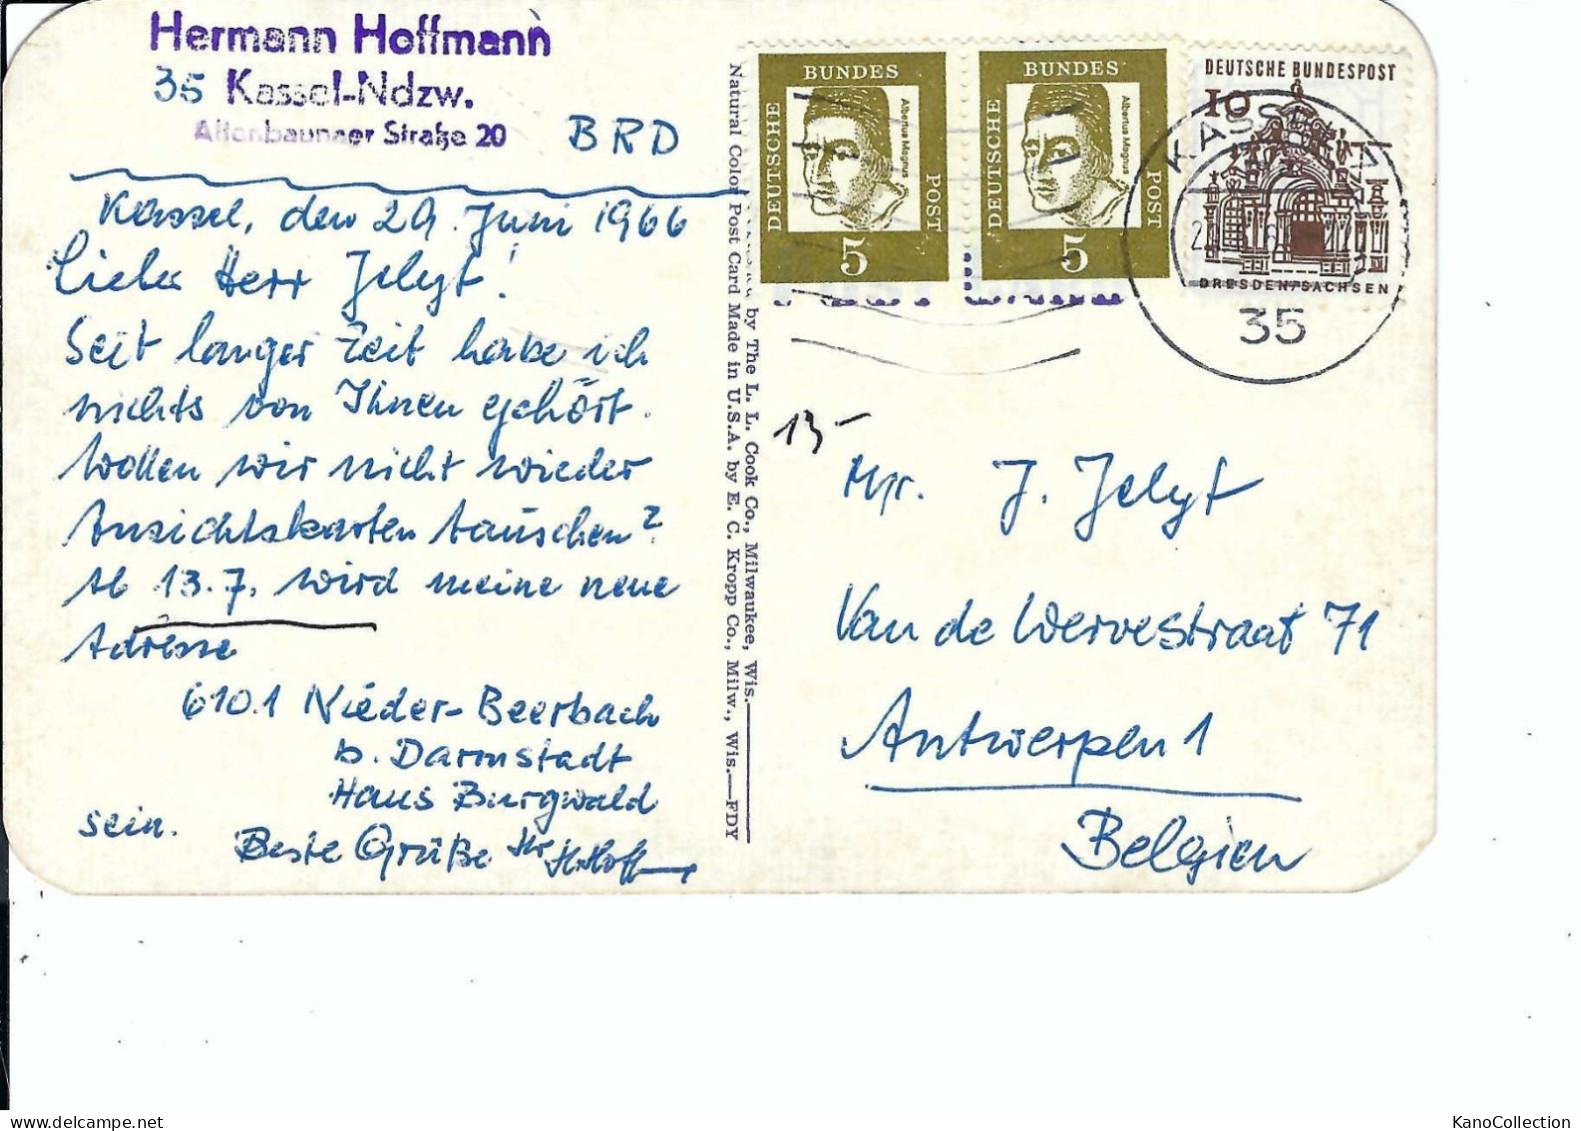 Hermann Hoffmann
35 Kassel-Ndzw.
Altenbaunaer Straße 20
BRD
Kassel, den 29. Juni 1966
Lieber Herr Jelyt!
Seit langer Zeit habe ich
nichts von Ihnen gehört.
Wollen wir nicht wieder
Ansichtskarten tauschen?
Ab 13.7. wird meine neue
Adresse
6101 Nieder-Beerbach
b. Darmstadt
Haus Burgwald
sein.
Beste Grüße Ihr
Natural Color Post Card Made in U.S.A. by E. C. Kropp Co., Milw., Wis.—FDY
by The L. L. Cook Co., Milwaukee, Wis.
DEUTSCHE BUNDESPOST
Albertus Magnus
5
DEUTSCHE BUNDESPOST
Albertus Magnus
5
DEUTSCHE BUNDESPOST
10
DRESDEN/SACHSEN
KASSEL 7
35
POST CARD
13-
Mr. J. Jelyt
Van de Wervestraat 71
Antwerpen 1
Belgien
KanoCollection